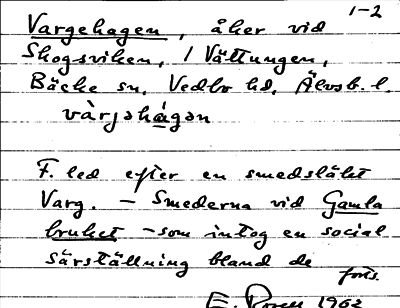 1-2
Vargehagen, åker vid
Skogsviken, / Vättungen,
Bäcke sn, Vedbo hd, Älvsb. l.
vàrjəhágən
F. led efter en smedsläkt
Varg. – Smederna vid Gamla
bruket – som intog en social
särställning bland de
forts.
E. 1962